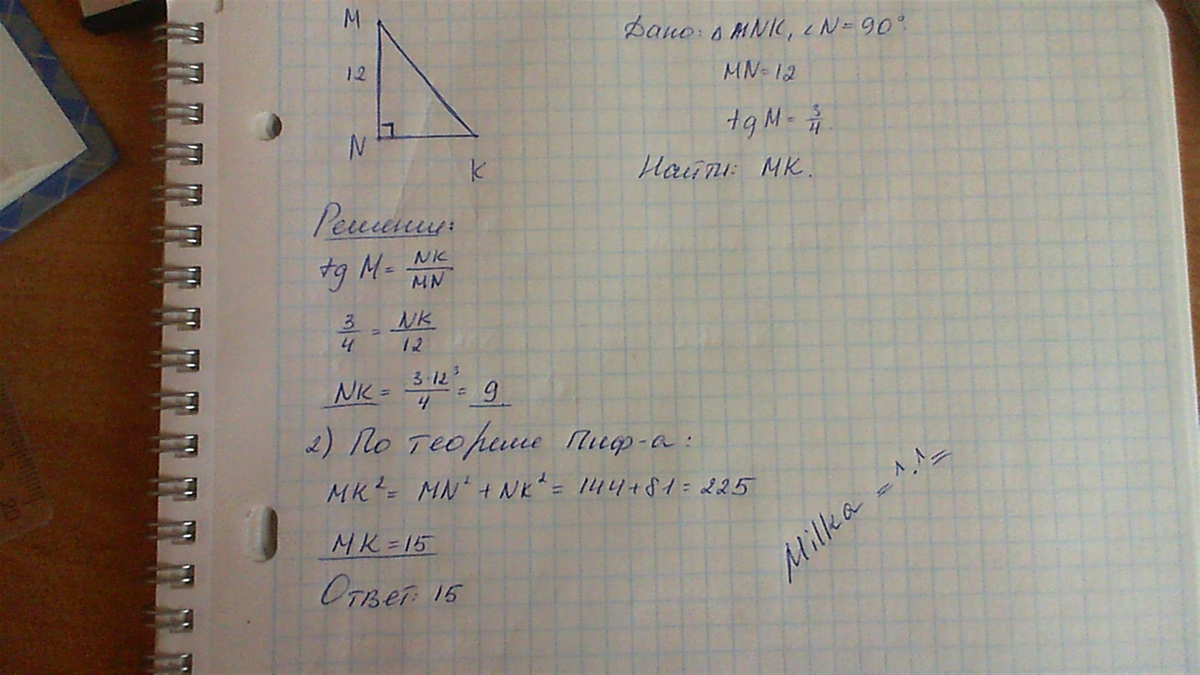 M
12
N
K
Дано: △MNK, ∠N=90°.
MN=12
tg M = 3/4.
Найти: MK.
Решение:
tg M = NK/MN
3/4 = NK/12
NK = 3·12³/4 = 9
2) По теореме Пиф-а:
MK² = MN² + NK² = 144+81 = 225
MK = 15
Ответ: 15
Milka =^.^=